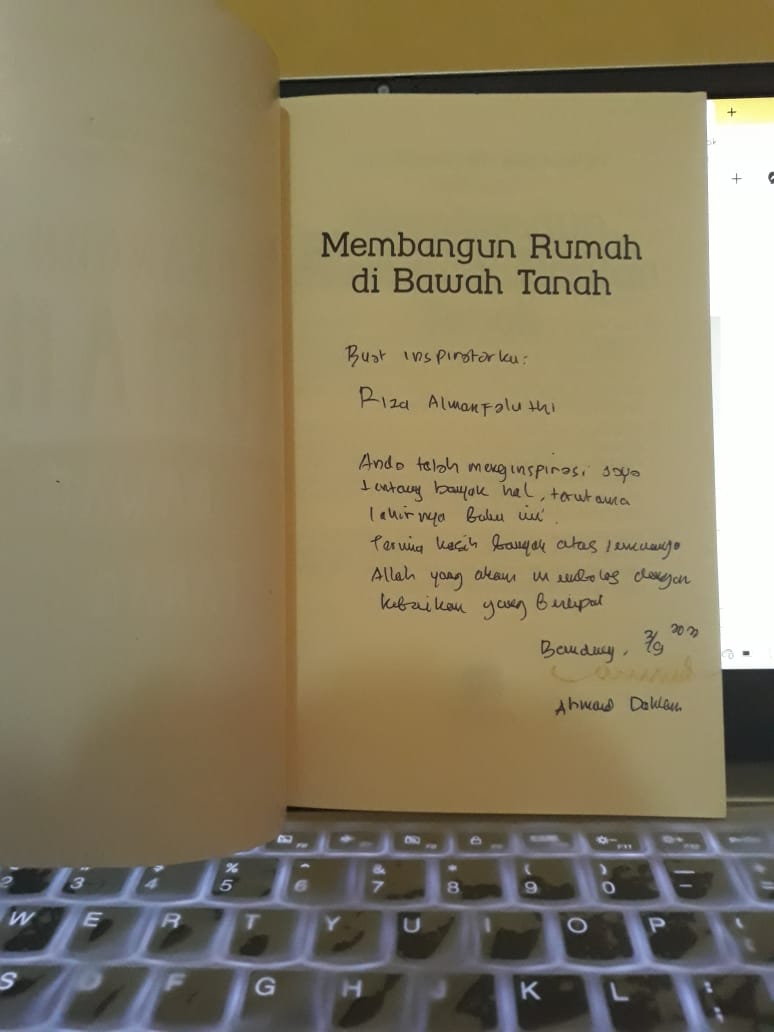 Membangun Rumah
di Bawah Tanah
Buat inspiratorku:
Riza Almanfaluthi
Anda telah menginspirasi saya
tentang banyak hal, terutama
lahirnya buku ini.
Terima kasih banyak atas
Allah yang akan membalas dengan
kebaikan yang
Bandung,
Ahmad Dahlan
% ^ & * ( )
2 3 4 5 6 7 8 9 0 - =
W E R T Y U I O P
S D F G H J K L ;